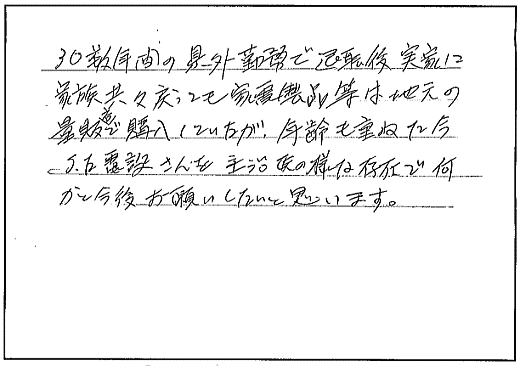 30数年間の県外勤務で退職後実家に
家族共々戻っても家電製品等は地元の
量販店で購入していたが、年齢も重ねた今
電設さんを主治医の様な存在で何
かと今後お願いしたいと思います。